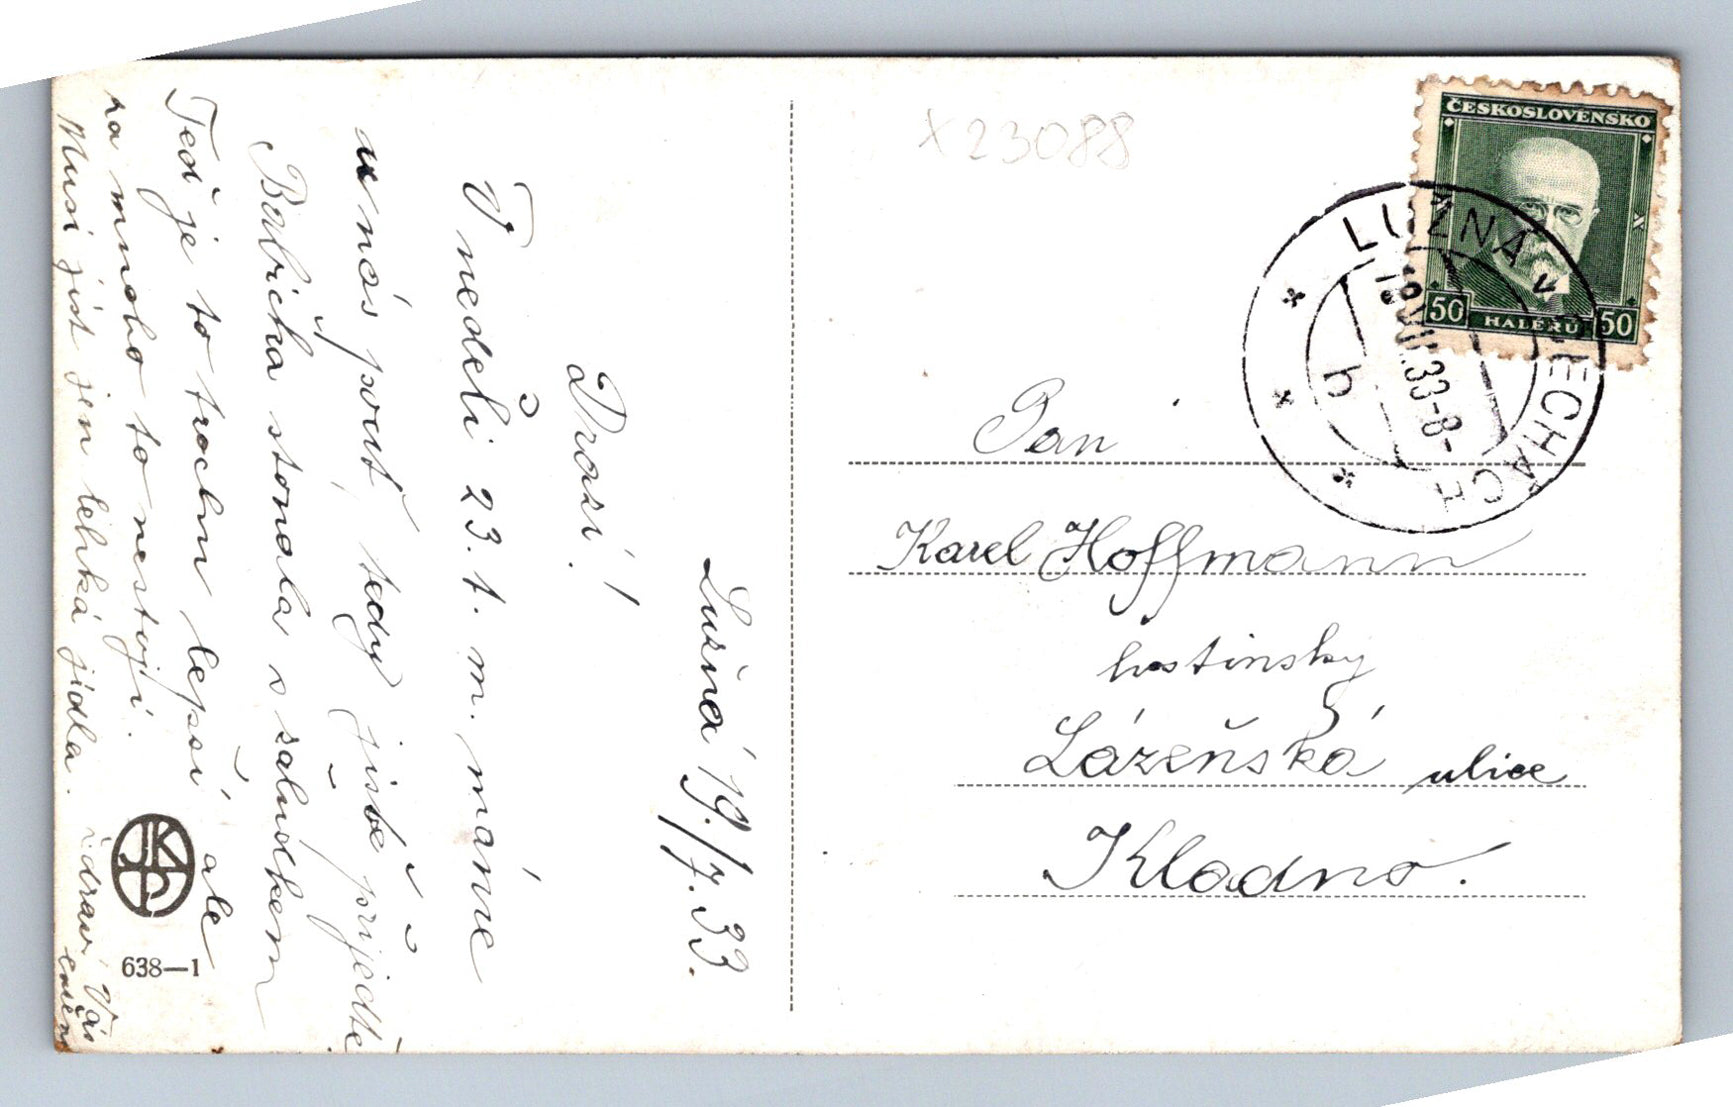 Lužná 19./7.33.
Drazí!
V neděli 23. t. m. máme
u nás pouť, tedy jistě přijeďte
Babička stonala s žaludkem
Teď je to trochu lepší ale
za mnoho to nestojí.
Musí jíst jen lehká jídla.
zdraví Vás
X23088
ČESKOSLOVENSKO
50 HALÉŘŮ 50
LUŽNÁ v ČECHÁCH
VII.33-8-
b
Pan
Karel Hoffmann
hostinský
Lázeňská ulice
Kladno.
JKO
638—1